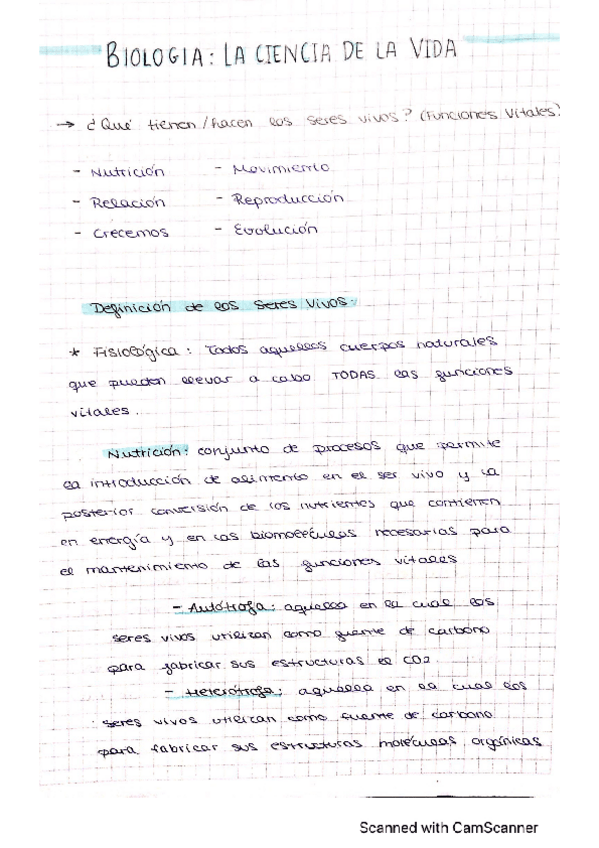 BIOLOGIA: LA CIENCIA DE LA VIDA
→ ¿Qué tienen/hacen los seres vivos? (Funciones vitales)
- Nutrición - Movimiento
- Relación - Reproducción
- Crecemos - Evolución
Definición de los seres vivos:
* Fisiológica: Todos aquellos cuerpos naturales
que pueden llevar a cabo TODAS las funciones
vitales.
Nutrición: conjunto de procesos que permite
la introducción de alimento en el ser vivo y la
posterior conversión de los nutrientes que contienen
en energía y en las biomoléculas necesarias para
el mantenimiento de las funciones vitales
- Autótrofa: aquella en la cual los
seres vivos utilizan como fuente de carbono
para fabricar sus estructuras el CO2.
- Heterótrofa: aquella en la cual los
seres vivos utilizan como fuente de carbono
para fabricar sus estructuras moléculas orgánicas
Scanned with CamScanner